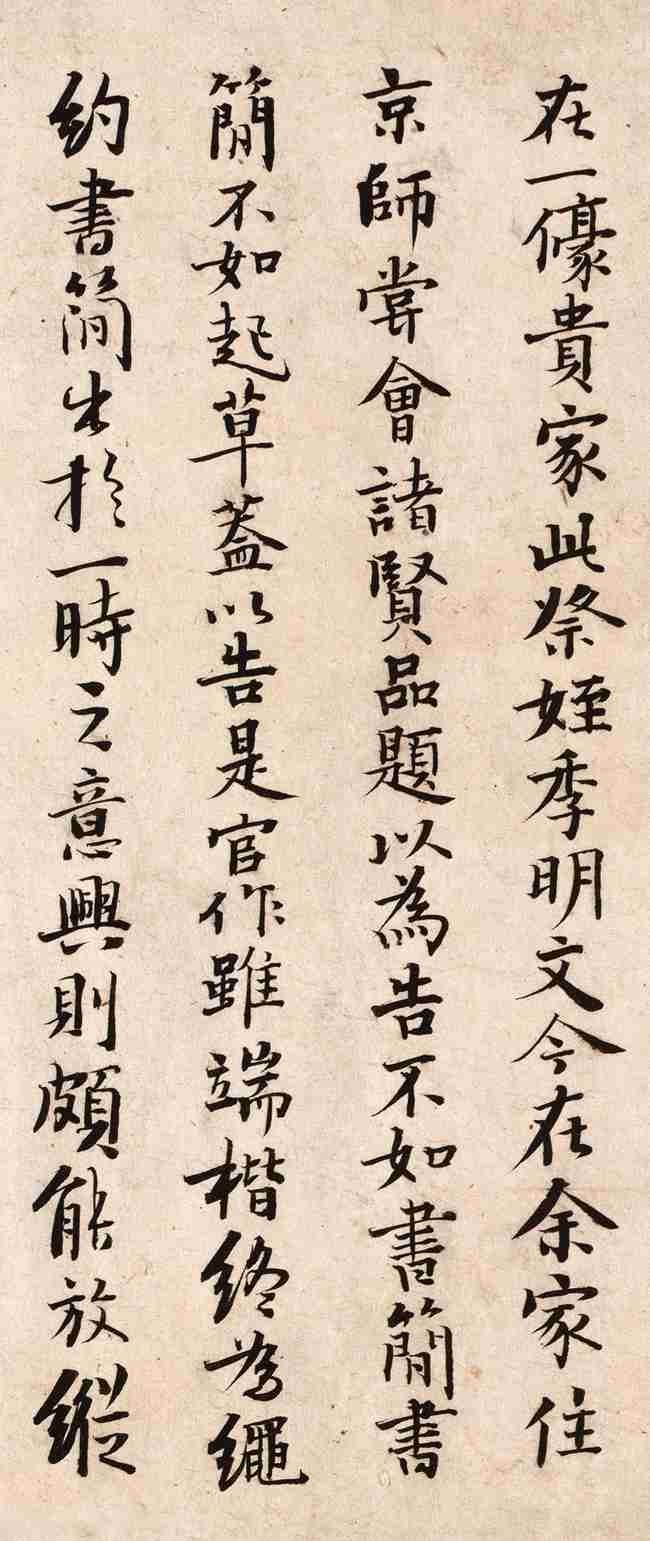 在一㒙貴家此祭姪季明文今在余家住
京師嘗會諸賢品題以為告不如書簡書
簡不如起草蓋以告是官作雖端楷終為繩
約書簡出於一時之意興則頗能放縱